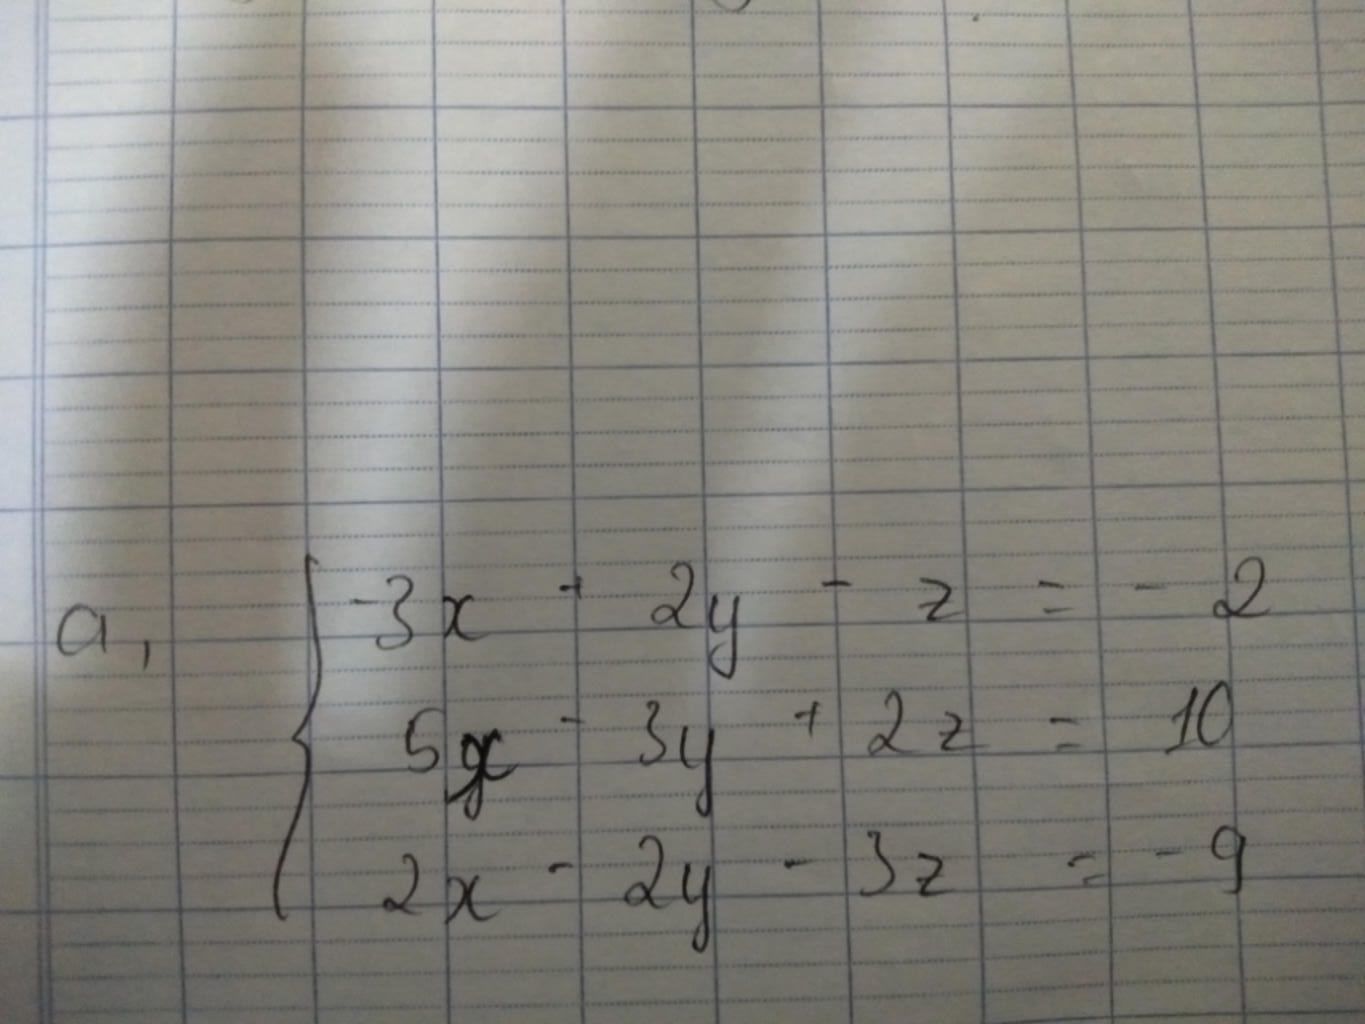 a, -3x + 2y - z = - 2
5x - 3y + 2z = 10
2x - 2y - 3z = - 9